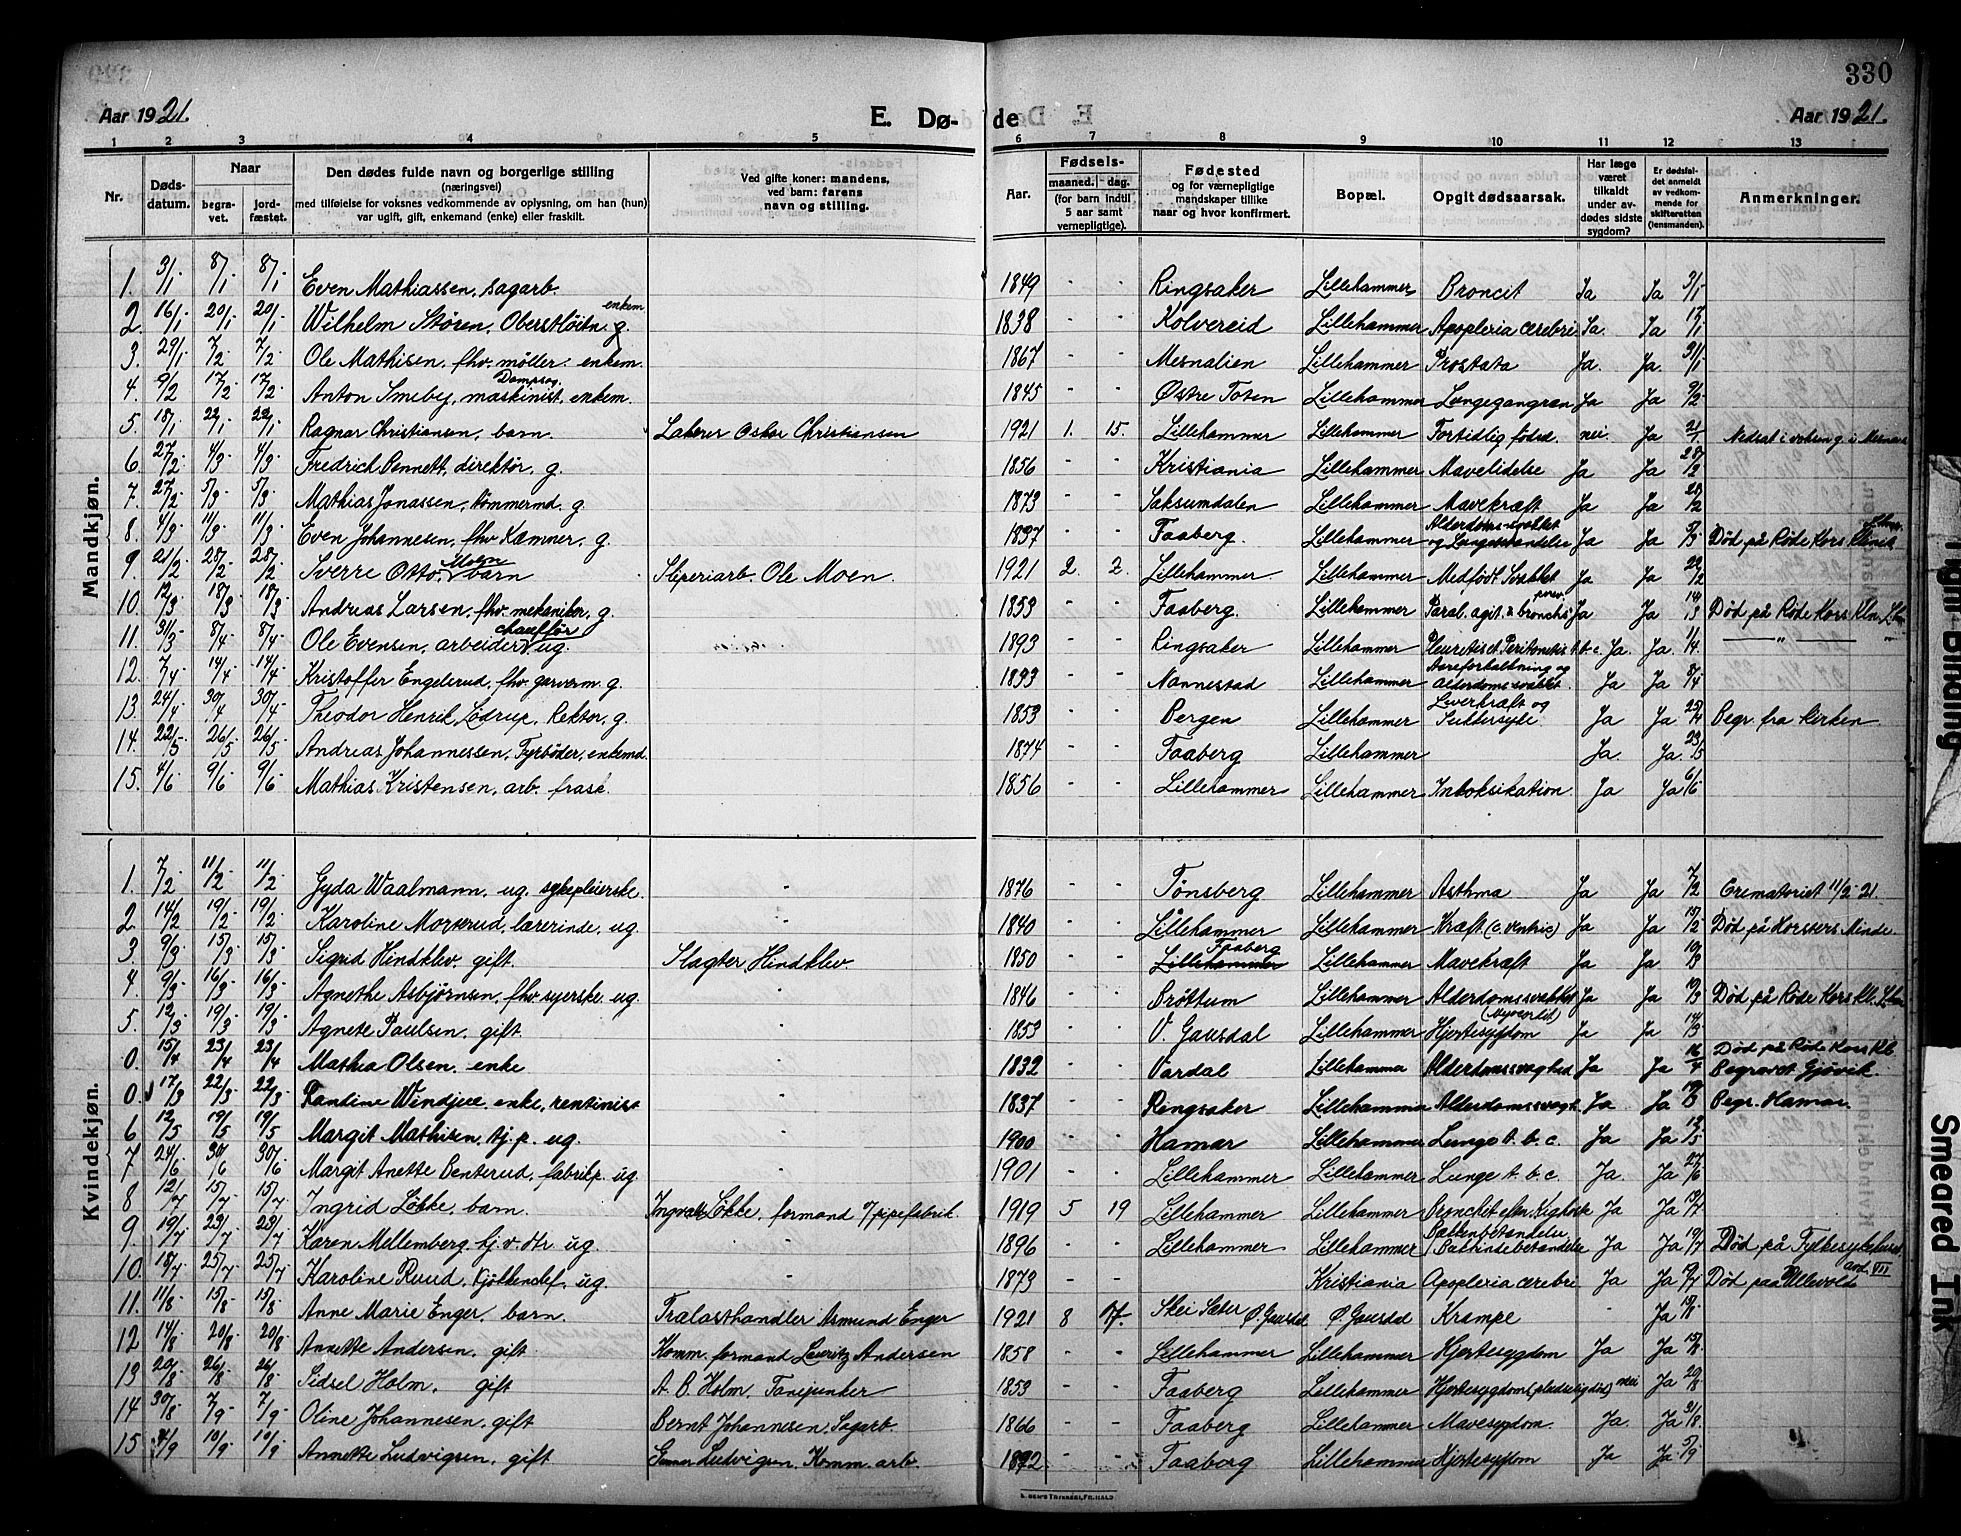 330
Aar 1921. E. Dø- de Aar 1921.
1 2 3 4 5 6 7 8 9 10 11 12 13
Nr. | Døds-datum. | Naar begra-vet. | jord-fæstet. | Den dødes fulde navn og borgerlige stilling (næringsvei) med tilføielse for voksnes vedkommende av oplysning, om han (hun) var ugift, gift, enkemand (enke) eller fraskilt. | Ved gifte koner: mandens, ved barn: farens navn og stilling. | Aar. | Fødsels- maaned. dag. (for barn indtil 5 aar samt vernepligtige). | Fødested og for værnepligtige mandskaper tillike naar og hvor konfirmert. | Bopæl. | Opgit dødsaarsak. | Har læge været tilkaldt under av-dødes sidste sygdom? | Er dødsfal-det anmeldt av vedkom-mende for skifteretten (lensmanden). | Anmerkninger.
Mandkjøn.
1. 3/1 8/1 8/1 Even Mathiassen, sagarb. 1849 - - Ringsaker Lillehammer Broncit Ja Ja 3/1
2. 16/1 20/1 20/1 Wilhelm Støren, Oberstløitn. g. enkem 1838 - - Kolvereid Lillehammer Apoplexia cerebri Ja. Ja 17/1
3. 29/1 7/2 7/2 Ole Mathisen, fhv. møller. enkem. 1867 - - Mesnalien Lillehammer Prostata Ja. Ja. 31/1
4. 9/2 17/2 17/2 Anton Smeby, Dampsag. maskinist, enkem. 1845 - - Østre Toten Lillehammer Lungegangræn Ja Ja 9/2
5. 18/1 22/1 22/1 Ragnar Christiansen, barn. Lakerer Oskar Christiansen 1921 1. 15. Lillehammer Lillehammer Fortidlig fødsel nei. Ja 21/1 Nedsat i
6. 27/2 4/3 4/3 Fredrich Bennett, direktør, g. 1856 - - Kristiania Lillehammer Mavelidelse Ja Ja 28/2
7. 27/2 5/3 5/3 Mathias Jonassen, tømmermd. g. 1873 - - Saksumdalen Lillehammer Mavekræft Ja Ja 28/2
8. 4/3 11/3 11/3 Even Johannesen, fhv Kæmner, g. 1837 - - Faaberg. Lillehammer Alderdoms-svakhet og Lungebetændelse Ja Ja 5/3 Død på Røde Kors Klinik
9. 21/2 28/2 28/2 Sverre Otto, Moen barn Sliperiarb. Ole Moen. 1921 2. 2. Lillehammer Lillehammer Medfødt Svakhet Ja Ja 22/2
10. 12/3 18/3 18/3 Andreas Larsen, fhv. mekaniker, g. 1853 - - Faaberg. Lillehammer Paral. agit. & bronchit Ja Ja 14/3 Død på Røde Kors Klin. Lhmr
11. 31/3 8/4 8/4 Ole Evensen, arbeider chauffør ug. 1893 - - Ringsaker Lillehammer Pleuritis et Peritonitis t.b.c. Ja. Ja. 1/4. — " — "
12. 7/4 14/4 14/4 Kristoffer Engelerud, fhv. garverm. g. 1833 - - Nannestad Lillehammer Aareforkalkning og Alderdomssvakhet. Ja Ja 8/4
13. 24/4 30/4 30/4 Theodor Henrik Lødrup, Rektor, g. 1853 - - Bergen Lillehammer Leverkræft og Sukkersyke Ja Ja 25/4 Begr. fra kirken
14. 22/5 26/5 26/5 Andreas Johannessen, Fyrbøder, enkemd. 1874 - - Faaberg Lillehammer Ja. Ja. 23/5
15. 4/6 9/6 9/6 Mathias Kristensen, arb. frask. 1856 - - Lillehammer Lillehammer Intoksikation. Ja Ja 6/6
Kvindekjøn.
1. 7/2 11/2 11/2 Gyda Waalmann, ug. sykepleierske. " 1876 - - Tønsberg Lillehammer Asthma Ja Ja 7/2 Crematoriet 11/2-21.
2. 14/2 19/2 19/2 Karoline Morterud, lærerinde, ug " 1840 - - Lillehammer Lillehammer Kræft (c. ventric) Ja Ja 15/2 Død på Korsters Minde
3. 9/3 15/3 15/3 Sigrid Hindklev, gift. Slagter Hindklev. 1850 - - Faaberg Lillehammer Lillehammer Mavekræft Ja Ja 10/3
4. 9/3 16/3 16/3 Agnethe Asbjørnsen, fhv syerske, ug. " 1846 - - Brøttum Lillehammer Alderdomssvakhet Ja Ja 10/3 Død på Røde Kors Kl. Lhmr
5. 12/3 19/3 19/3 Agnete Paulsen, gift. " 1853 - - V. Gausdal Lillehammer Hjertesygdom Ja Ja 14/3
0. 15/4 23/4 23/4 Mathea Olsen. enke " 1832 - - Vardal Lillehammer Alderdomssvaghed Ja Ja 16/4 Død på Røde Kors Kl. Begravet Gjøvik.
0 17/3 22/3 22/3 Randine Windjue. enke, rentinist " 1837 - - Ringsaker Lillehammer Alderdomssvagh. Ja Ja Begr. Hamar.
6 12/5 19/5 19/5 Margit Mathisen, tj. p. ug. " 1900 - - Hamar Lillehammer Lunge t. b. c. Ja Ja 13/5
7 24/6 30/6 30/6 Margit Anette Benterud, fabrikp. ug " 1901 - - Lillehammer Lillehammer Lunge t. b. c. Ja. Ja 27/6
8 12/7 15/7 15/7 Ingrid Løkke, barn. Ingvald Løkke, formand v/ pipefabrik 1919 5 19 Lillehammer Lillehammer Bronchet efter Kighoste Ja Ja 13/7
9. 19/7 23/7 23/7 Karen Mellemberg, tj. v. dtr. ug. " 1896 - - Lillehammer Lillehammer Bukhindebetændelse Ja Ja 19/7 Død på Fylkessykehuset
10. 18/7 25/7 25/7 Karoline Ruud, Kjøkkenchef, ug. " 1873 - - Kristiania Apoplexia cerebri Ja Ja Død paa Ullevold avd. VII
11. 11/8 15/8 15/8 Anne Marie Enger, barn. Trælasthandler Asmund Enger 1921 8 17. Skei Sæter Ø. Gausdal Ø. Gausdal Krampe - Ja 15/8
12 14/8 20/8 20/8 Annette Andersen, gift Komm. formand Lauritz Andersen 1858 - - Lillehammer Lillehammer Hjertesygdom Ja Ja 15/8
13 20/8 26/8 26/8 Sidsel Holm, gift A. B. Holm, Fanejunker 1853 - - Faaberg Lillehammer Hjertesygdom nei Ja 20/8
14 30/8 7/9 7/9 Oline Johannesen, gift Bernt Johannesen, Sagarb. 1866 - - Faaberg Lillehammer Mavesygdom. Ja. Ja 31/8
15 4/9 10/9 10/9 Annette Ludvigsen, gift Gunnar Ludvigsen. Komm. arb. 1892 - - Faaberg Lillehammer Hjertesygdom Ja Ja 5/9
Tight Binding
Smeared Ink